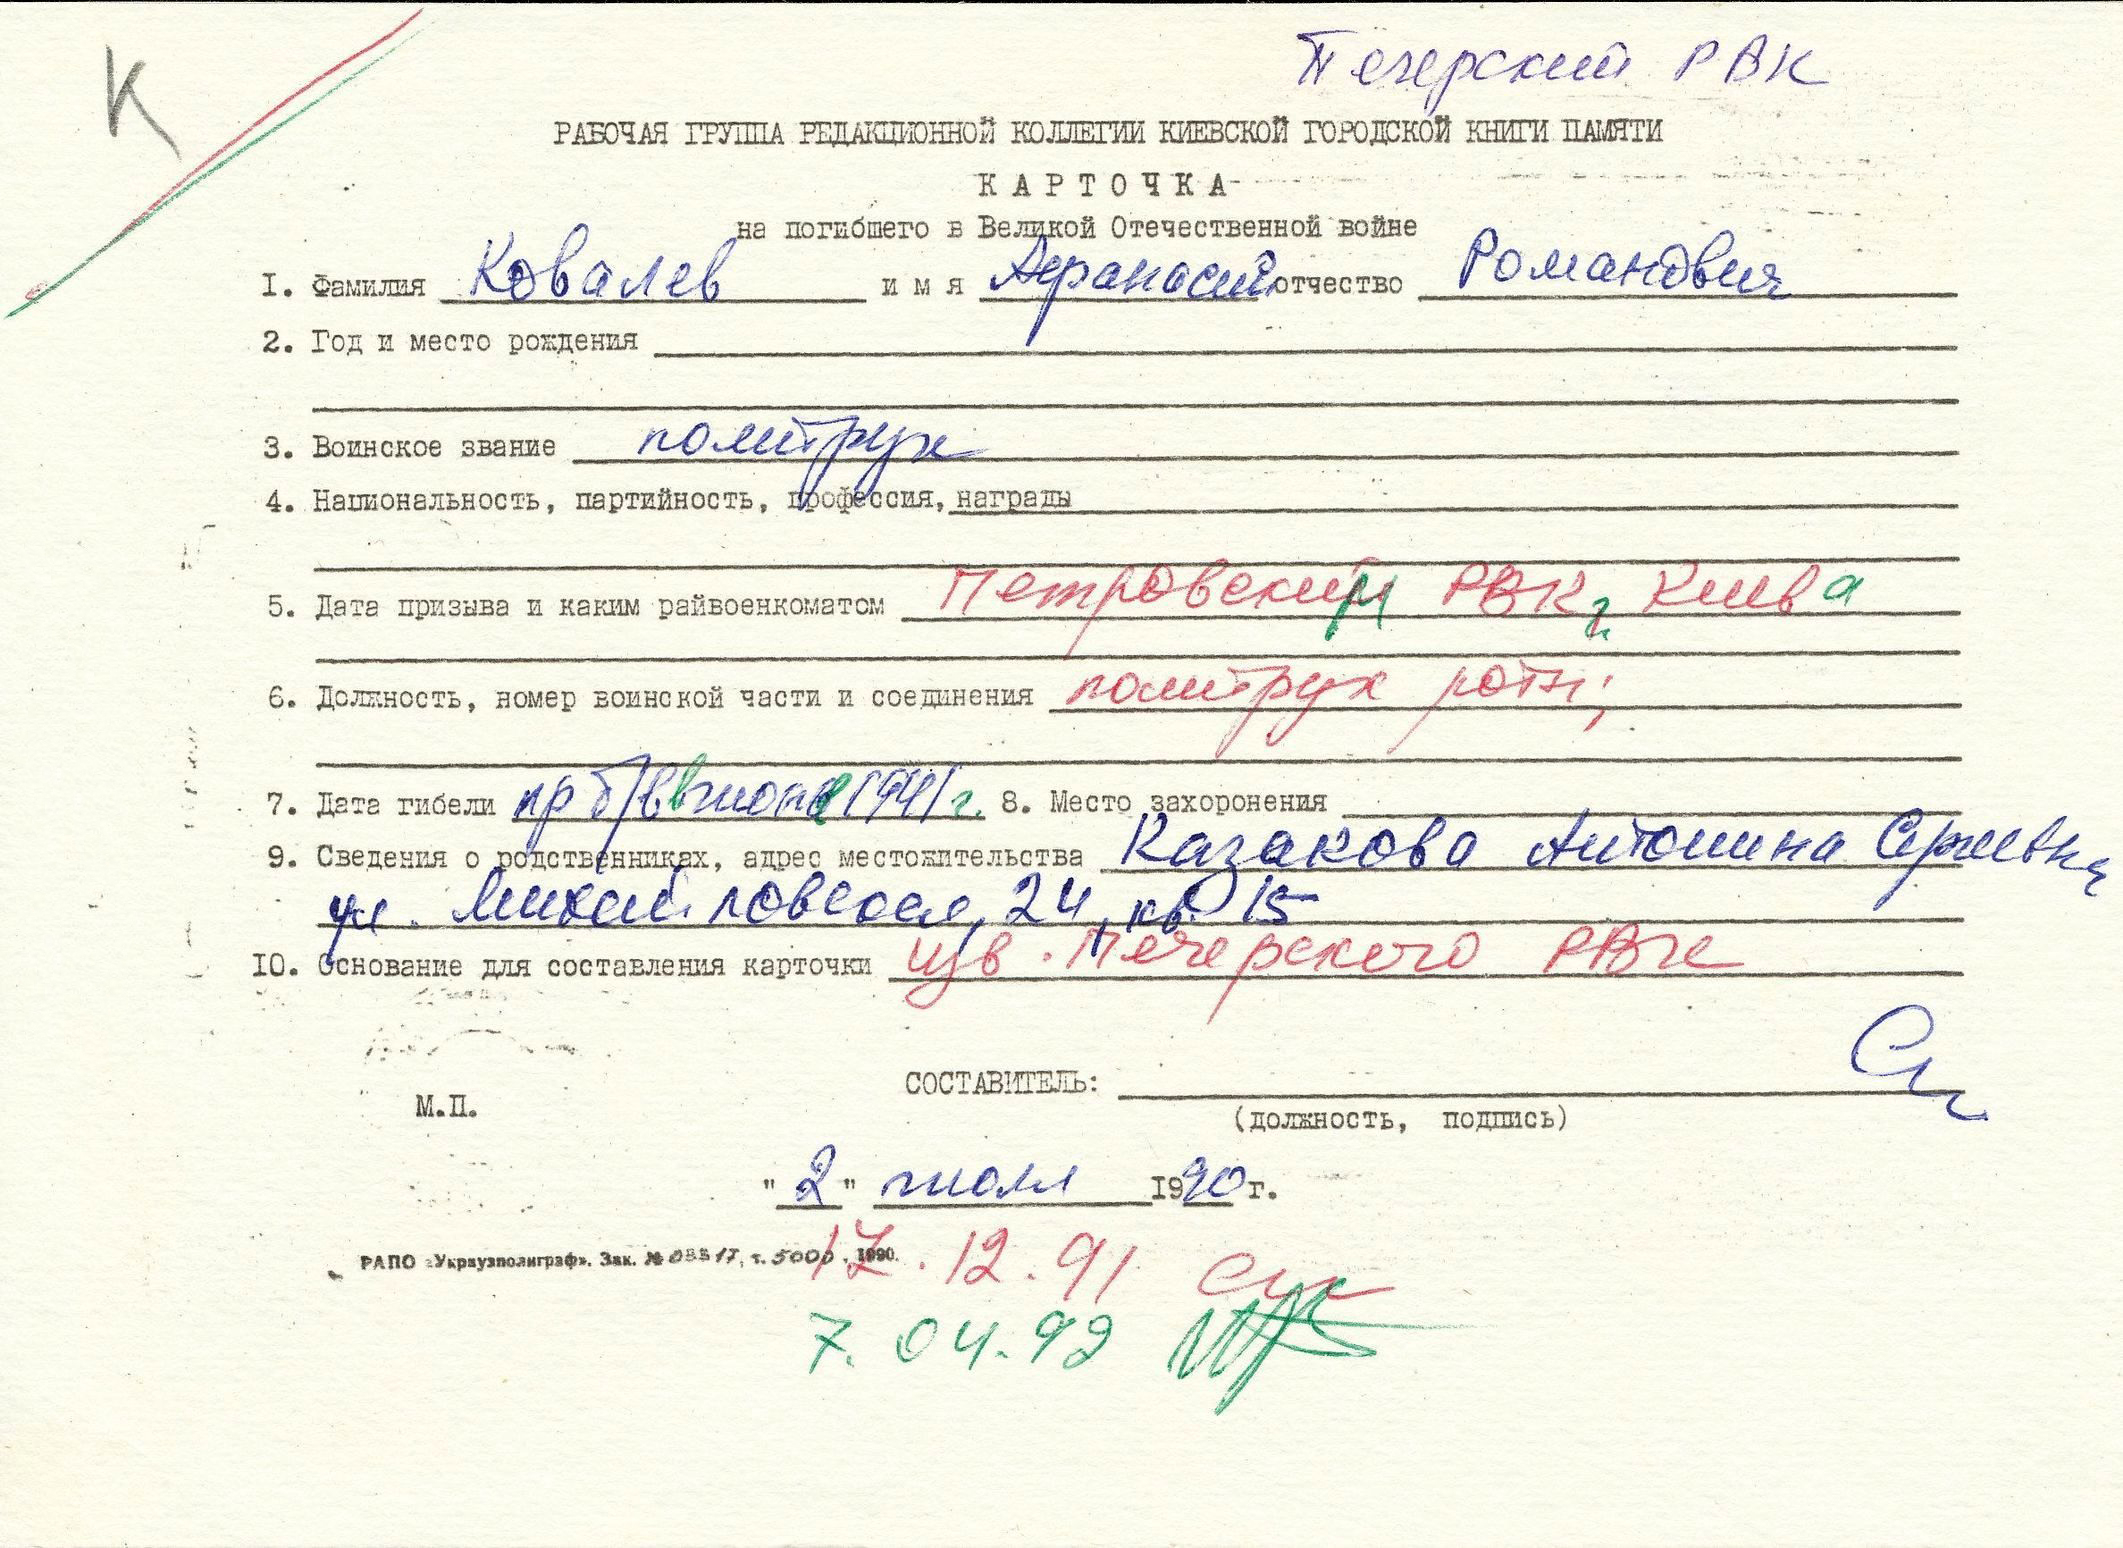 К
Печерский РВК
РАБОЧАЯ ГРУППА РЕДАКЦИОННОЙ КОЛЛЕГИИ КИЕВСКОЙ ГОРОДСКОЙ КНИГИ ПАМЯТИ
КАРТОЧКА
на погибшего в Великой Отечественной войне
I. Фамилия Ковалев имя Афанасий отчество Романович
2. Год и место рождения
3. Воинское звание политрук
4. Национальность, партийность, профессия, награды
5. Дата призыва и каким райвоенкоматом Петровским РВК г. Киева
6. Должность, номер воинской части и соединения политрук роты;
7. Дата гибели пр б/в в 1941 г. 8. Место захоронения
9. Сведения о родственниках, адрес местожительства Казакова Антонина
ул. Михайловская, 24, кв. 15
10. Основание для составления карточки изв. Печерского РВК
СОСТАВИТЕЛЬ:
М.П.
(должность, подпись)
"2" июля 1990 г.
РАПО «Укрвузполиграф». Зак. № т. 5000. 1990.
17.12.91
7.04.92